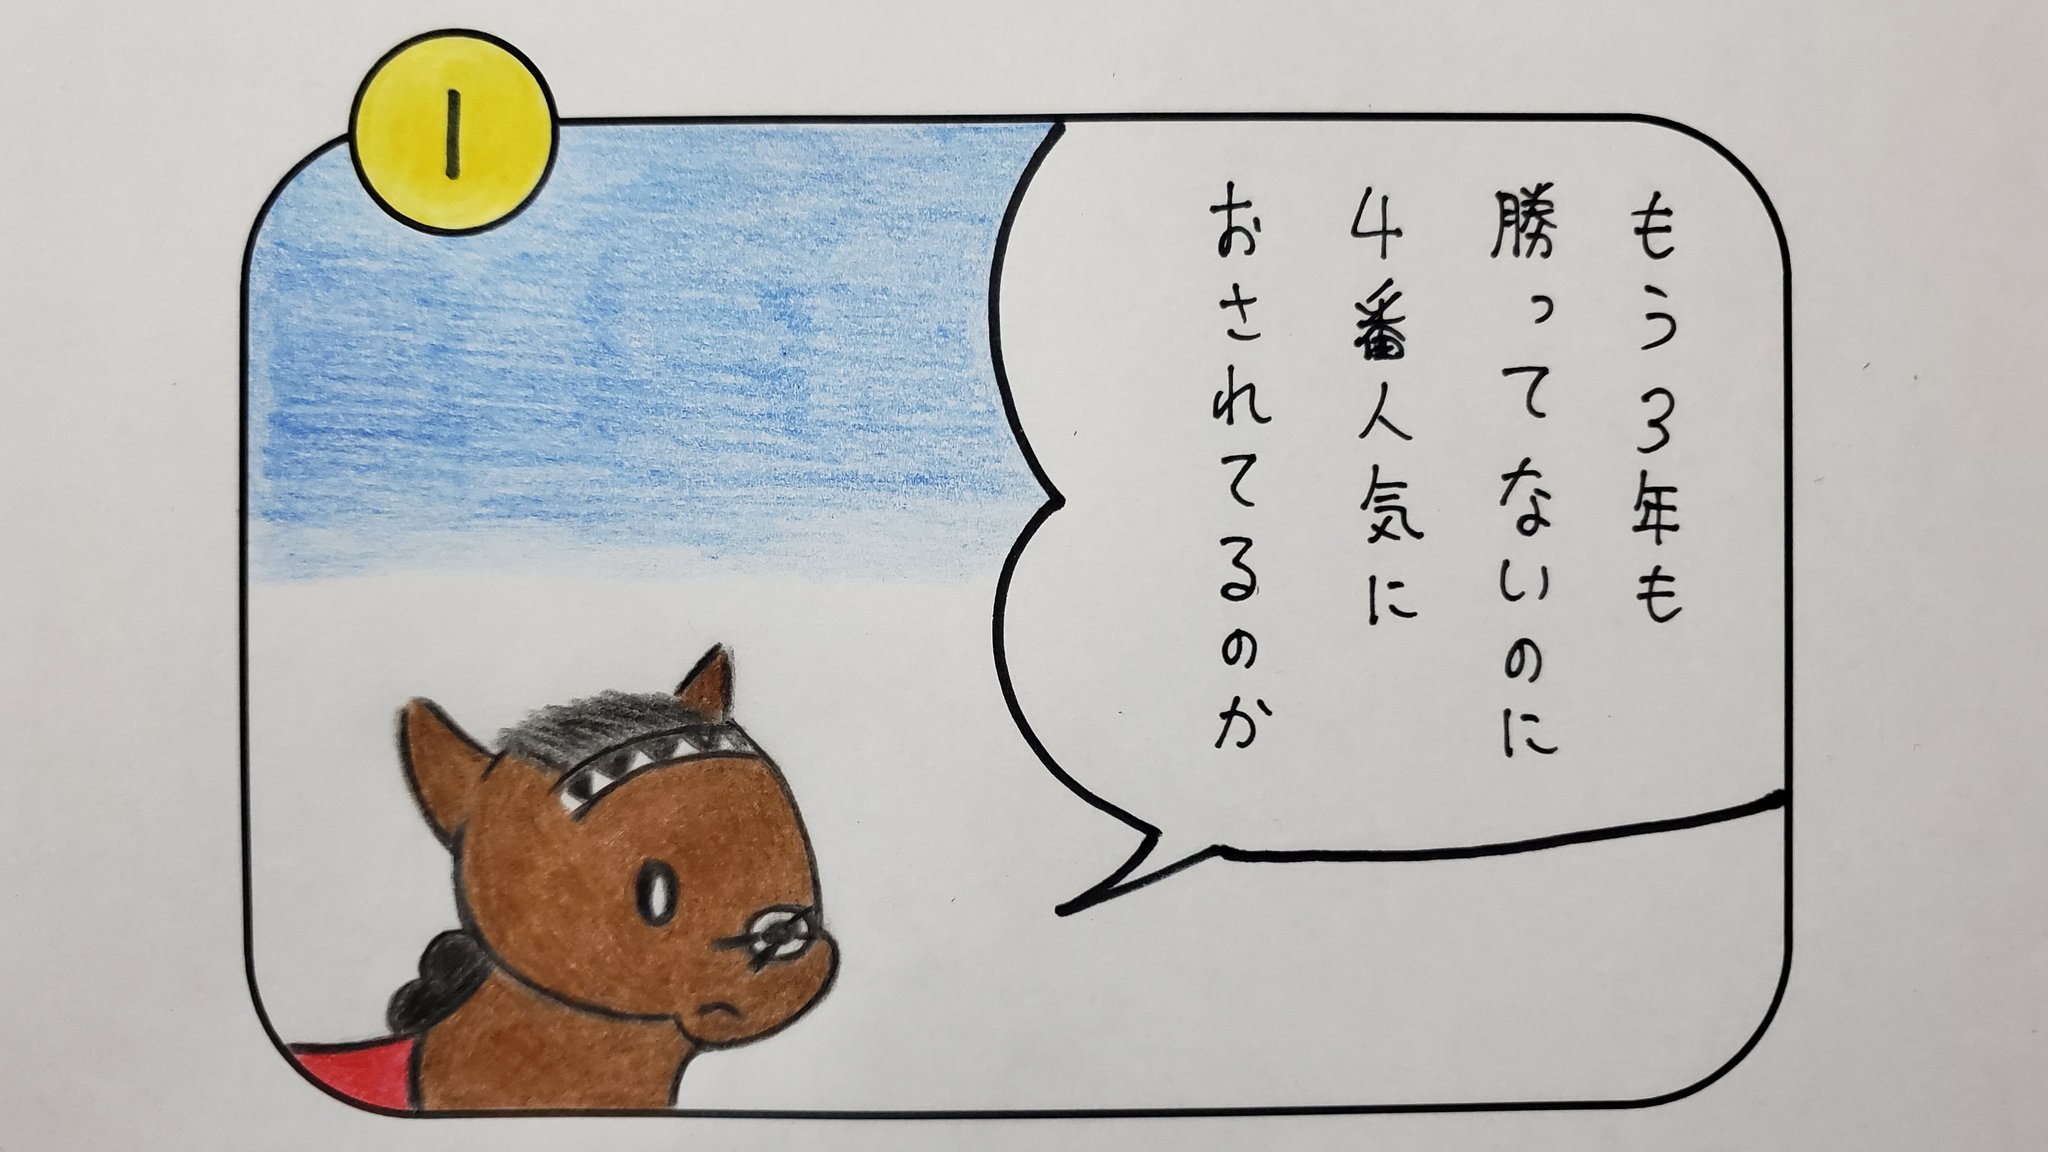 1
もう3年も
勝ってないのに
4番人気に
おされてるのか